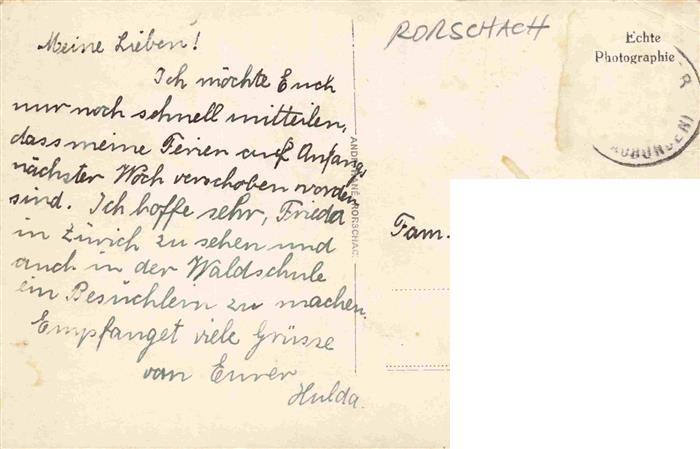 Meine Lieben!
Ich möchte Euch
nur noch schnell mitteilen,
dass meine Ferien auf Anfang
nächster Woch verschoben worden
sind. Ich hoffe sehr, Frieda
in Zürich zu sehen und
auch in der Waldschule
ein Besüchlein zu machen.
Empfanget viele Grüsse
von Eurer
Hulda.
RORSCHACH
Echte
Photographie
Fam.